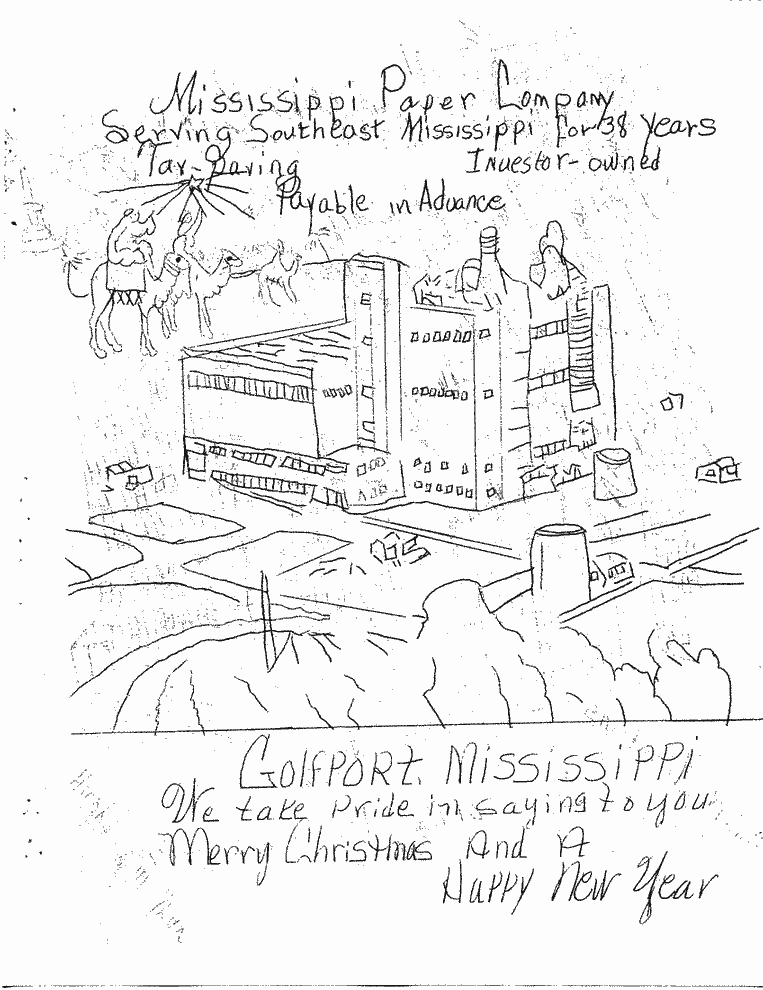 Mississippi Paper Company
Serving Southeast Mississippi for 38 years
Tar-Paving Investor-owned
Payable in Advance
Golfport, Mississippi
We take pride in saying to you
Merry Christmas And A
Happy New Year